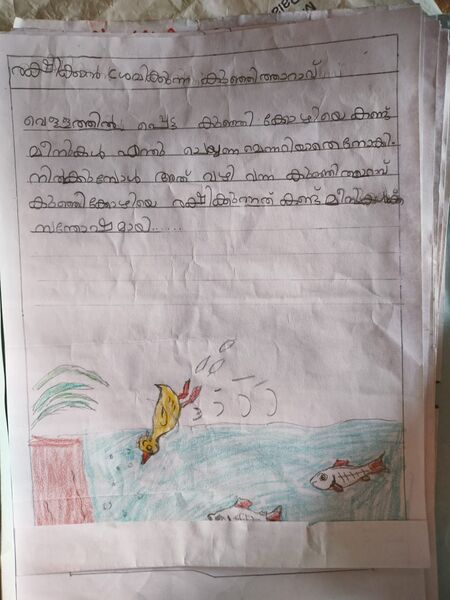 രക്ഷിക്കാൻ ശ്രമിക്കുന്ന കുഞ്ഞിത്താറാവ്
വെള്ളത്തിൽ പ്പെട്ട കുഞ്ഞി കോഴിയെ കണ്ട്
മീനുകൾ എന്തു ചെയ്യണ മെന്നറിയാതെ നോക്കി
നിൽക്കുമ്പോൾ അത് വഴി വന്ന കുഞ്ഞിത്താറാവ്
കുഞ്ഞിക്കോഴിയെ രക്ഷിക്കുന്നത് കണ്ട് മീനുകൾക്ക്
സന്തോഷമായി......